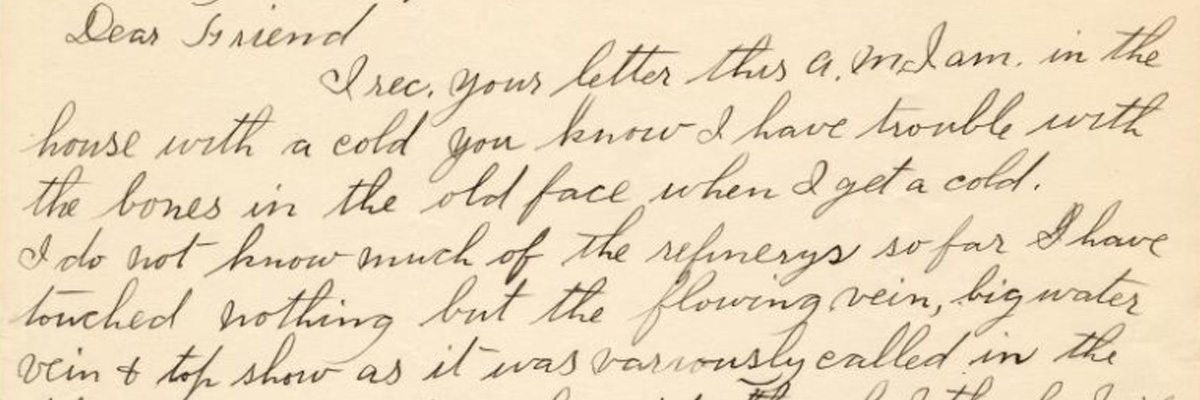 Dear Friend
I rec. your letter this a.m I am. in the
house with a cold you know I have trouble with
the bones in the old face when I get a cold.
I do not know much of the refinerys so far I have
touched nothing but the flowing vein, big water
vein & top show as it was variously called in the